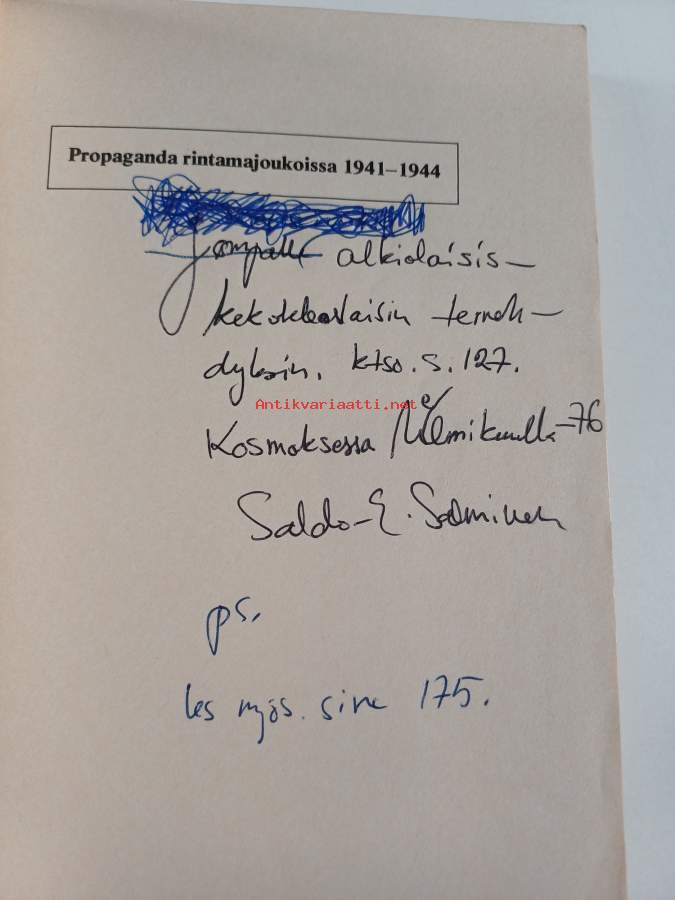 Propaganda rintamajoukoissa 1941–1944
alkiolaisis–
terveh–
dyksin. ktso. s. 127.
Antikvariaatti.net
Kosmoksessa Helmikuulla –76
Saldo–E. Salminen
ps.
kts myös. sivu 175.